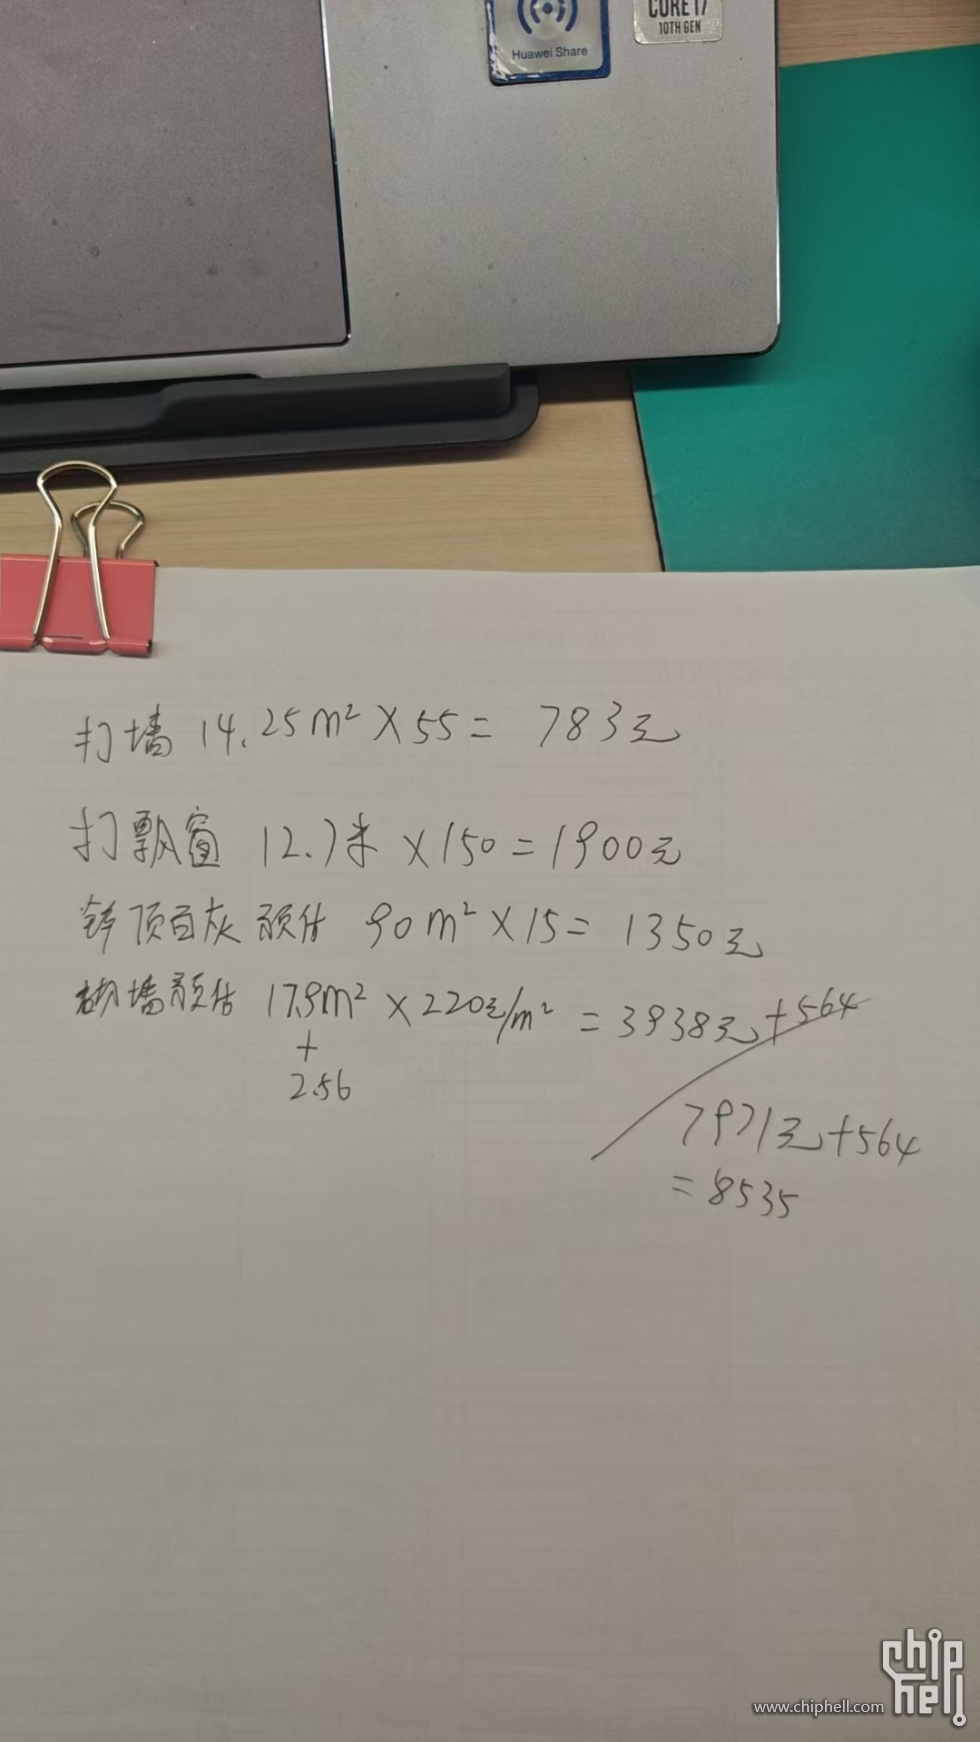 Huawei Share
CORE i7
10TH GEN
打墙 14.25m² × 55 = 783元
打飘窗 12.7米 × 150 = 1900元
铲顶白灰 预估 90m² × 15 = 1350元
砌墙预估 17.9m² × 220元/m² = 3938元+564
+
2.56
7971元+564
= 8535
chip hell
www.chiphell.com